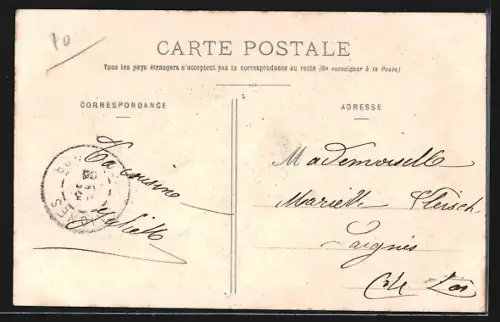 10
CARTE POSTALE
Tous les pays étrangers n'acceptent pas la correspondance au recto (Se renseigner à la Poste)
CORRESPONDANCE
ADRESSE
Ta cousine
Juliette
Mademoiselle
Mariette
Côte d'Or